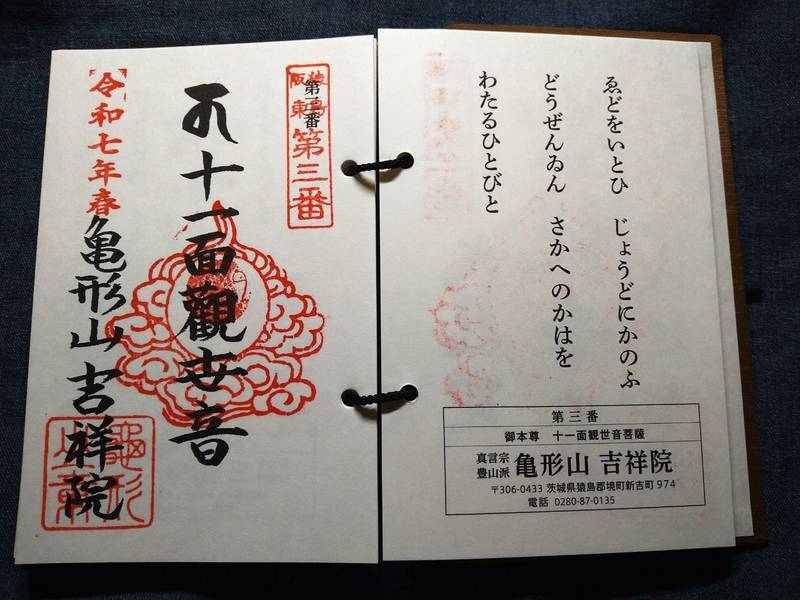 ゑどをいとひ　じょうどにかのふ
どうぜんゐん　さかへのかはを
わたるひとびと
第三番
御本尊　十一面観世音菩薩
真言宗
豊山派
亀形山 吉祥院
〒306-0433 茨城県猿島郡境町新吉町 974
電話 0280-87-0135
猿島
阪東
第三番
第三番
十一面觀世音
令和七年春
亀形山吉祥院